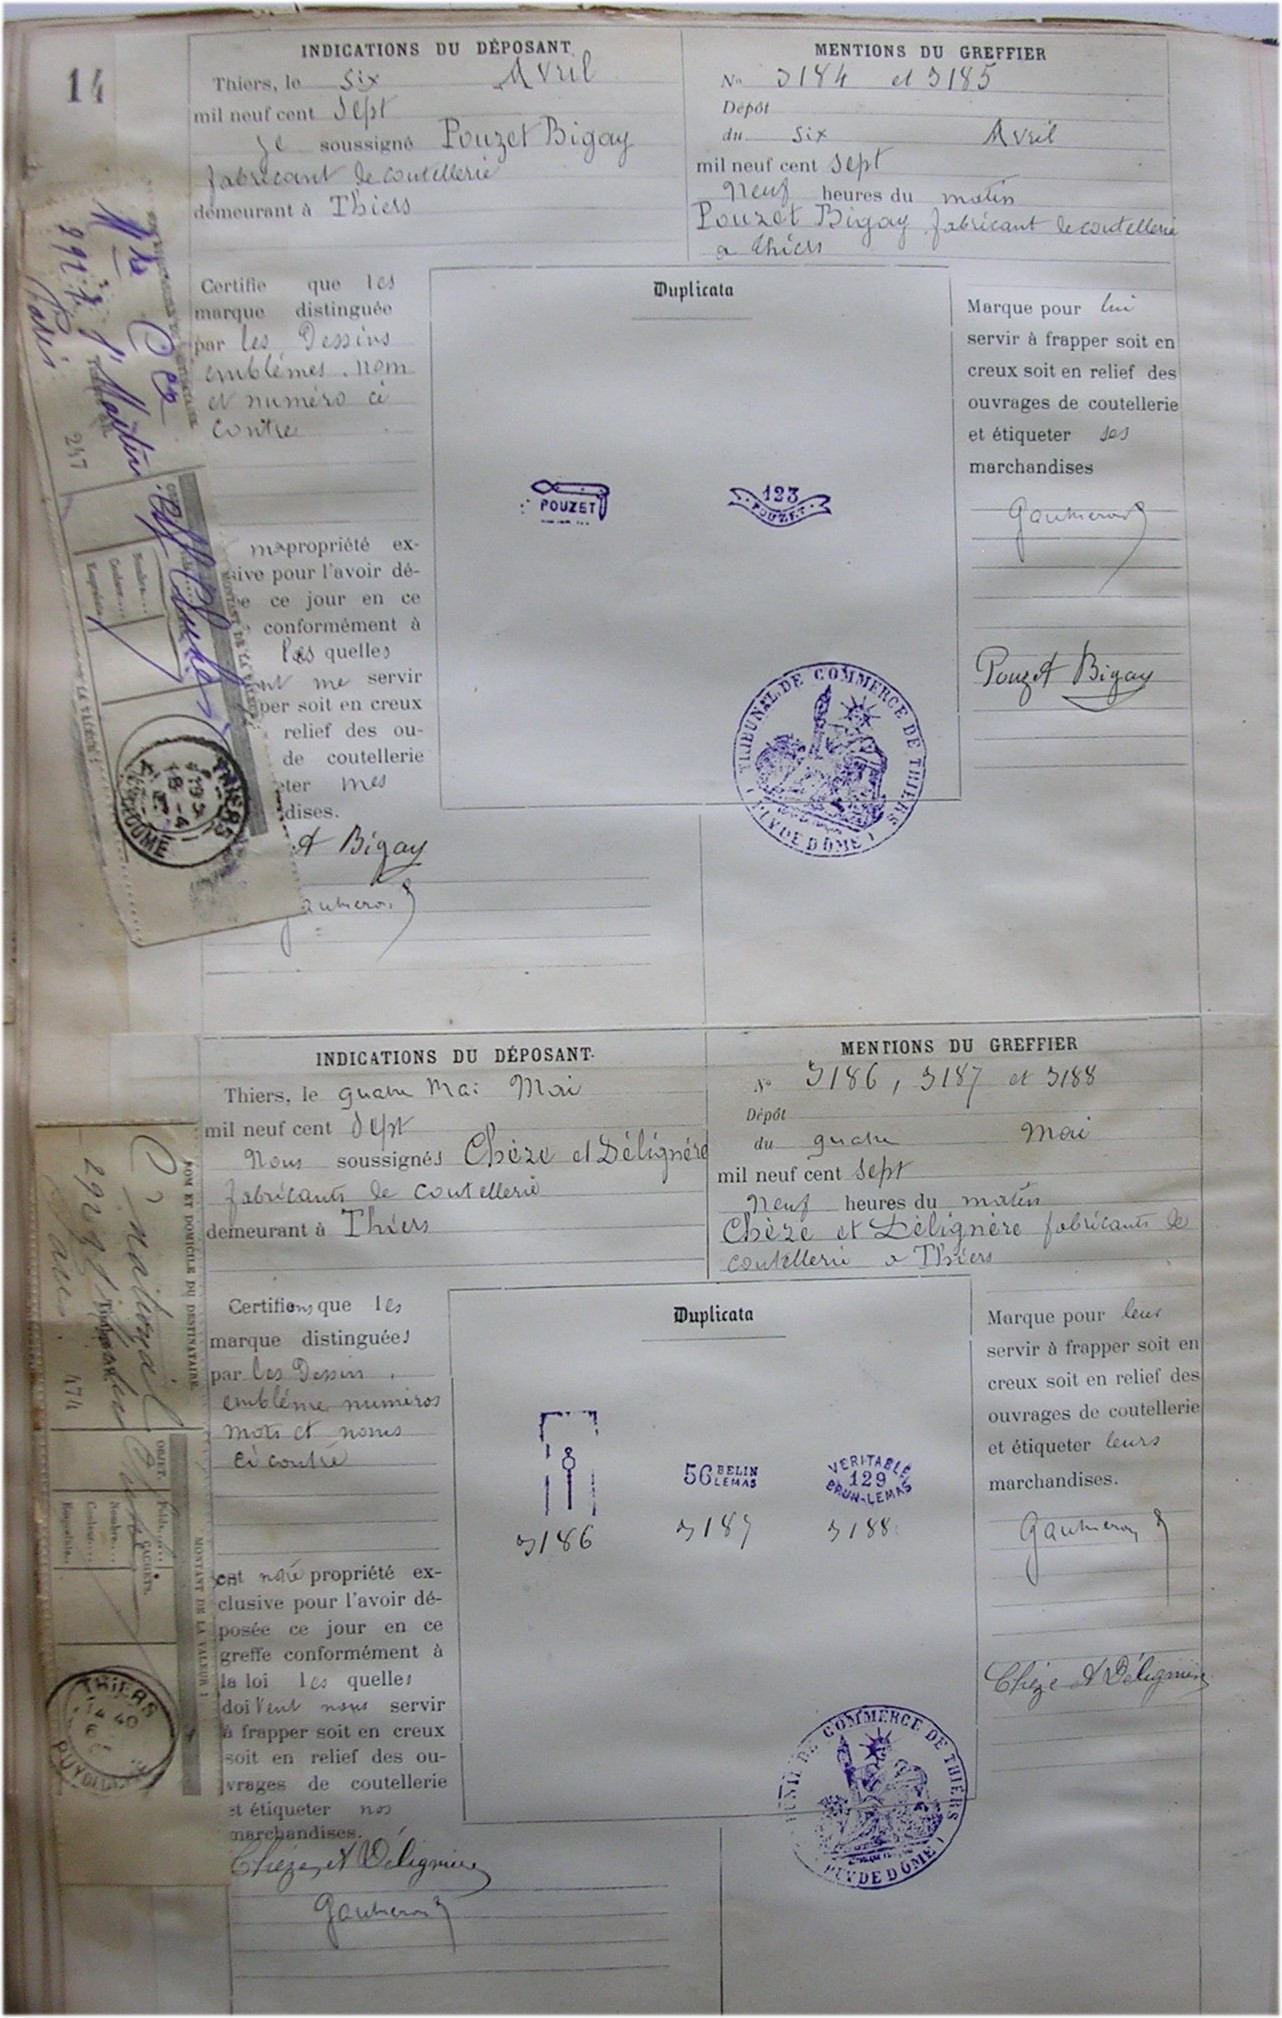 14
INDICATIONS DU DÉPOSANT
Thiers, le six Avril
mil neuf cent sept
je soussigné Pouzet Bigay
fabricant de coutellerie
demeurant à Thiers
MENTIONS DU GREFFIER
No 3184 et 3185
Dépôt
du six Avril
mil neuf cent sept
neuf heures du matin
Pouzet Bigay fabricant de coutellerie
a Thiers
Certifie que les
marque distinguée
par les Dessins
emblêmes. nom
et numéro ci
contre
ma propriété ex-
sive pour l'avoir dé-
e ce jour en ce
conformément à
les quelles
ent me servir
per soit en creux
relief des ou-
de coutellerie
eter mes
dises.
et Bigay
Duplicata
POUZET
123
POUZET
TRIBUNAL DE COMMERCE DE THIERS
PUY DE DOME
Marque pour lui
servir à frapper soit en
creux soit en relief des
ouvrages de coutellerie
et étiqueter ses
marchandises
Pouzet Bigay
Martin
Paris
247
THIERS
INDICATIONS DU DÉPOSANT.
Thiers, le quatre Mai Mai
mil neuf cent sept
Nous soussignés Chèze et Délignère
fabricants de coutellerie
demeurant à Thiers
MENTIONS DU GREFFIER
No 3186, 3187 et 3188
Dépôt
du quatre Mai
mil neuf cent sept
neuf heures du matin
Chèze et Délignère fabricants de
coutellerie a Thiers
Certifions que les
marque distinguées
par les Dessin,
emblême numéros
mots et noms
ci contre
est notre propriété ex-
clusive pour l'avoir dé-
posée ce jour en ce
greffe conformément à
la loi les quelles
doivent nous servir
à frapper soit en creux
soit en relief des ou-
vrages de coutellerie
et étiqueter nos
marchandises.
Chèze et Délignère
Duplicata
56 BELIN
LEMAS
VERITABLE
129
BRUN-LEMAS
3186
3187
3188
DE COMMERCE DE THIERS
PUY DE DOME
Marque pour leur
servir à frapper soit en
creux soit en relief des
ouvrages de coutellerie
et étiqueter leurs
marchandises.
Chèze et Délignère
NOM ET DOMICILE DU DESTINATAIRE.
474
OBJET.
CACHETS.
Nombre....
Couleur....
Empreinte..
MONTANT DE LA VALEUR
THIERS
14 40